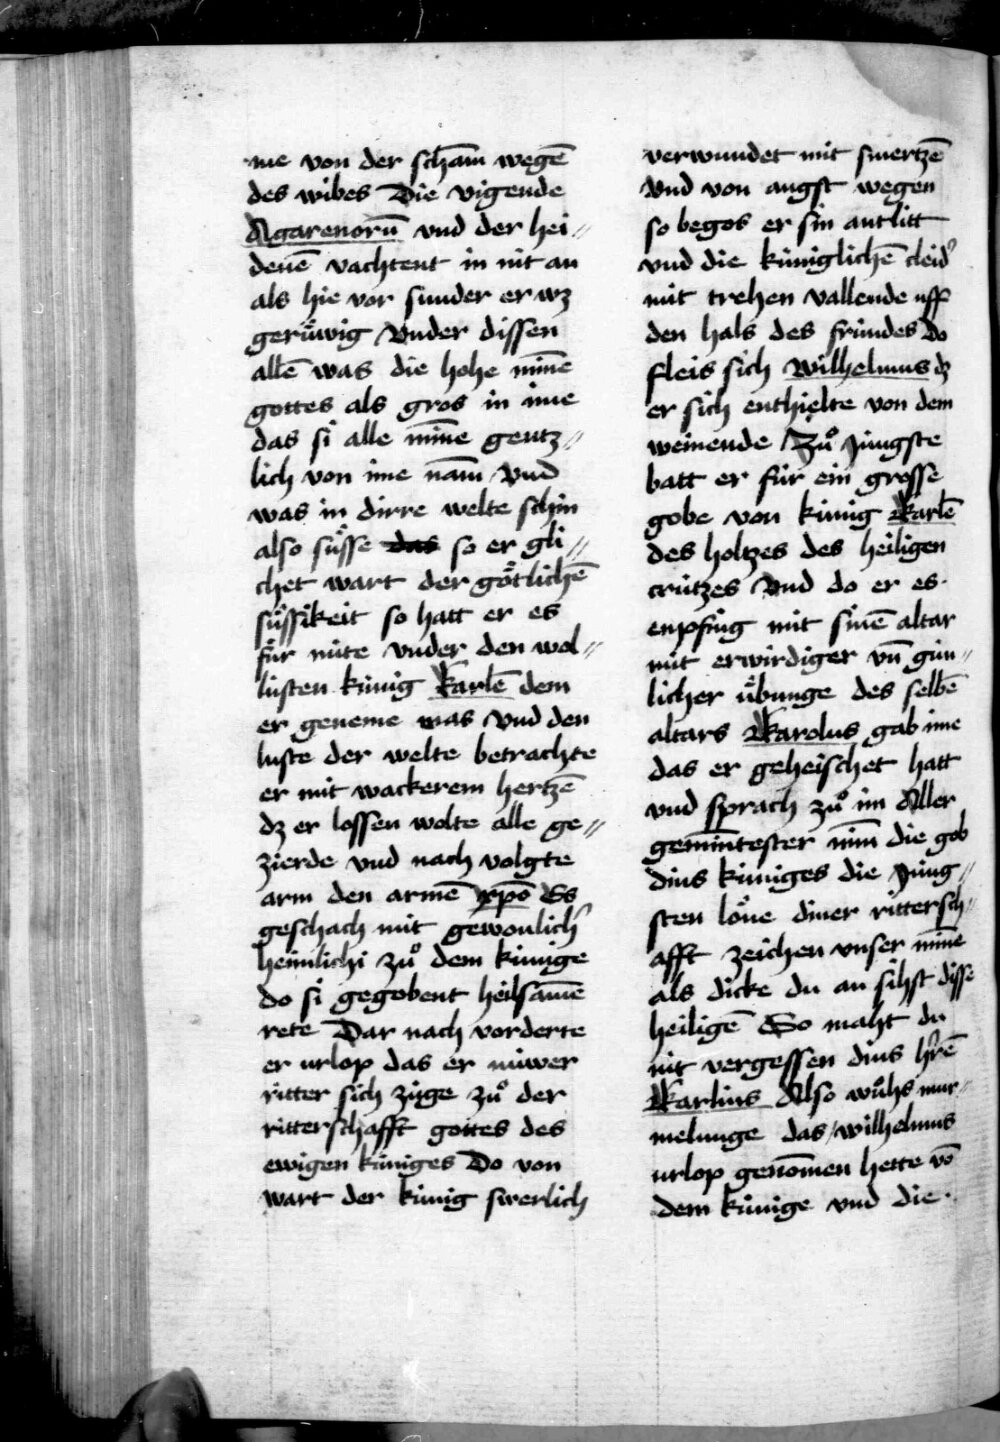 me von der scham wegē
des wibes Die vigende
Agarenorū vnd der hei⸗
denē vachtent in nit an
als hie vor sunder er wz
gerüwig Vnder dissen
allē was die hohe mīne
gottes als gros in ime
das si alle mīne gentz⸗
lich von ime nam Vnd
was in dirre welte schin
also süͤsse das so er gli⸗
chet wart der goͤtlichē
süssikeit so hatt er es
für nüte vnder den wol⸗
lüsten künig karlē dem
er geneme was Vnd den
luste der welte betrachte
er mit wackerem hertzē
dz er lossen wolte alle ge⸗
zierde vnd nach volgte
arm den armē xp̄o Es
geschach mit gewonlich̉
heimlichi zuͦ dem künige
do si gegobent heilsamē
rete Dar nach vorderte
er urlop das er nüwer
ritter sich züge zuͦ der
ritterschafft gottes des
ewigen küniges Do von
wart der künig swerlich
verwundet mit smertzē
Vnd von angst wegen
so begos er sin antlitt
vnd die küniglichē cleid̉
mit trehen vallende uff
den hals des fründes Do
fleis sich Wilhelmus dz
er sich enthielte von dem
weinende Zuͦ Jüngste
batt er für ein grosse
gobe von künig karlē
des holtzes des heiligen
crützes Vnd do er es
enpfing mit sinē altar
mit erwirdiger vn̄ gün⸗
licher uͤbunge des selbē
altars Karolus gab ime
das er geheischet hatt
vnd sprach zuͦ im Aller
gemīntester nim die gob
dins küniges die Jüng⸗
sten loͤne diner rittersch⸗
afft zeichen vnser mīne
als dicke du an sihst disse
heiligē So maht du
nit vergessen dins h̉rē
Karlins Also wuͦhs mur⸗
melunge das wilhelmus
urlop genōmen hette vō
dem künige vnd die